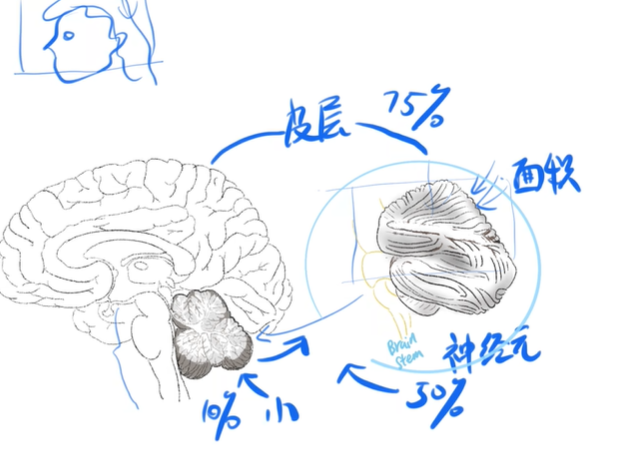 皮层 75%
面积
Brain
Stem
神经元
10% 小
50%